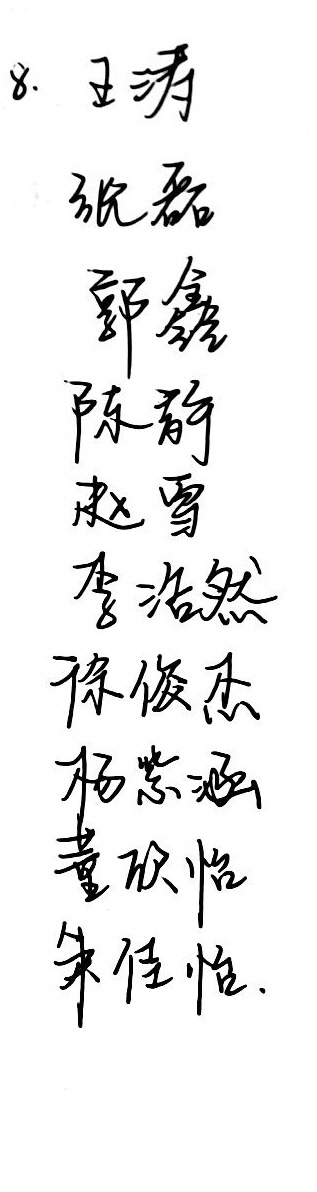 8. 王涛
张磊
郭鑫
陈静
赵雪
李浩然
徐俊杰
杨紫涵
董欣怡
朱佳怡.